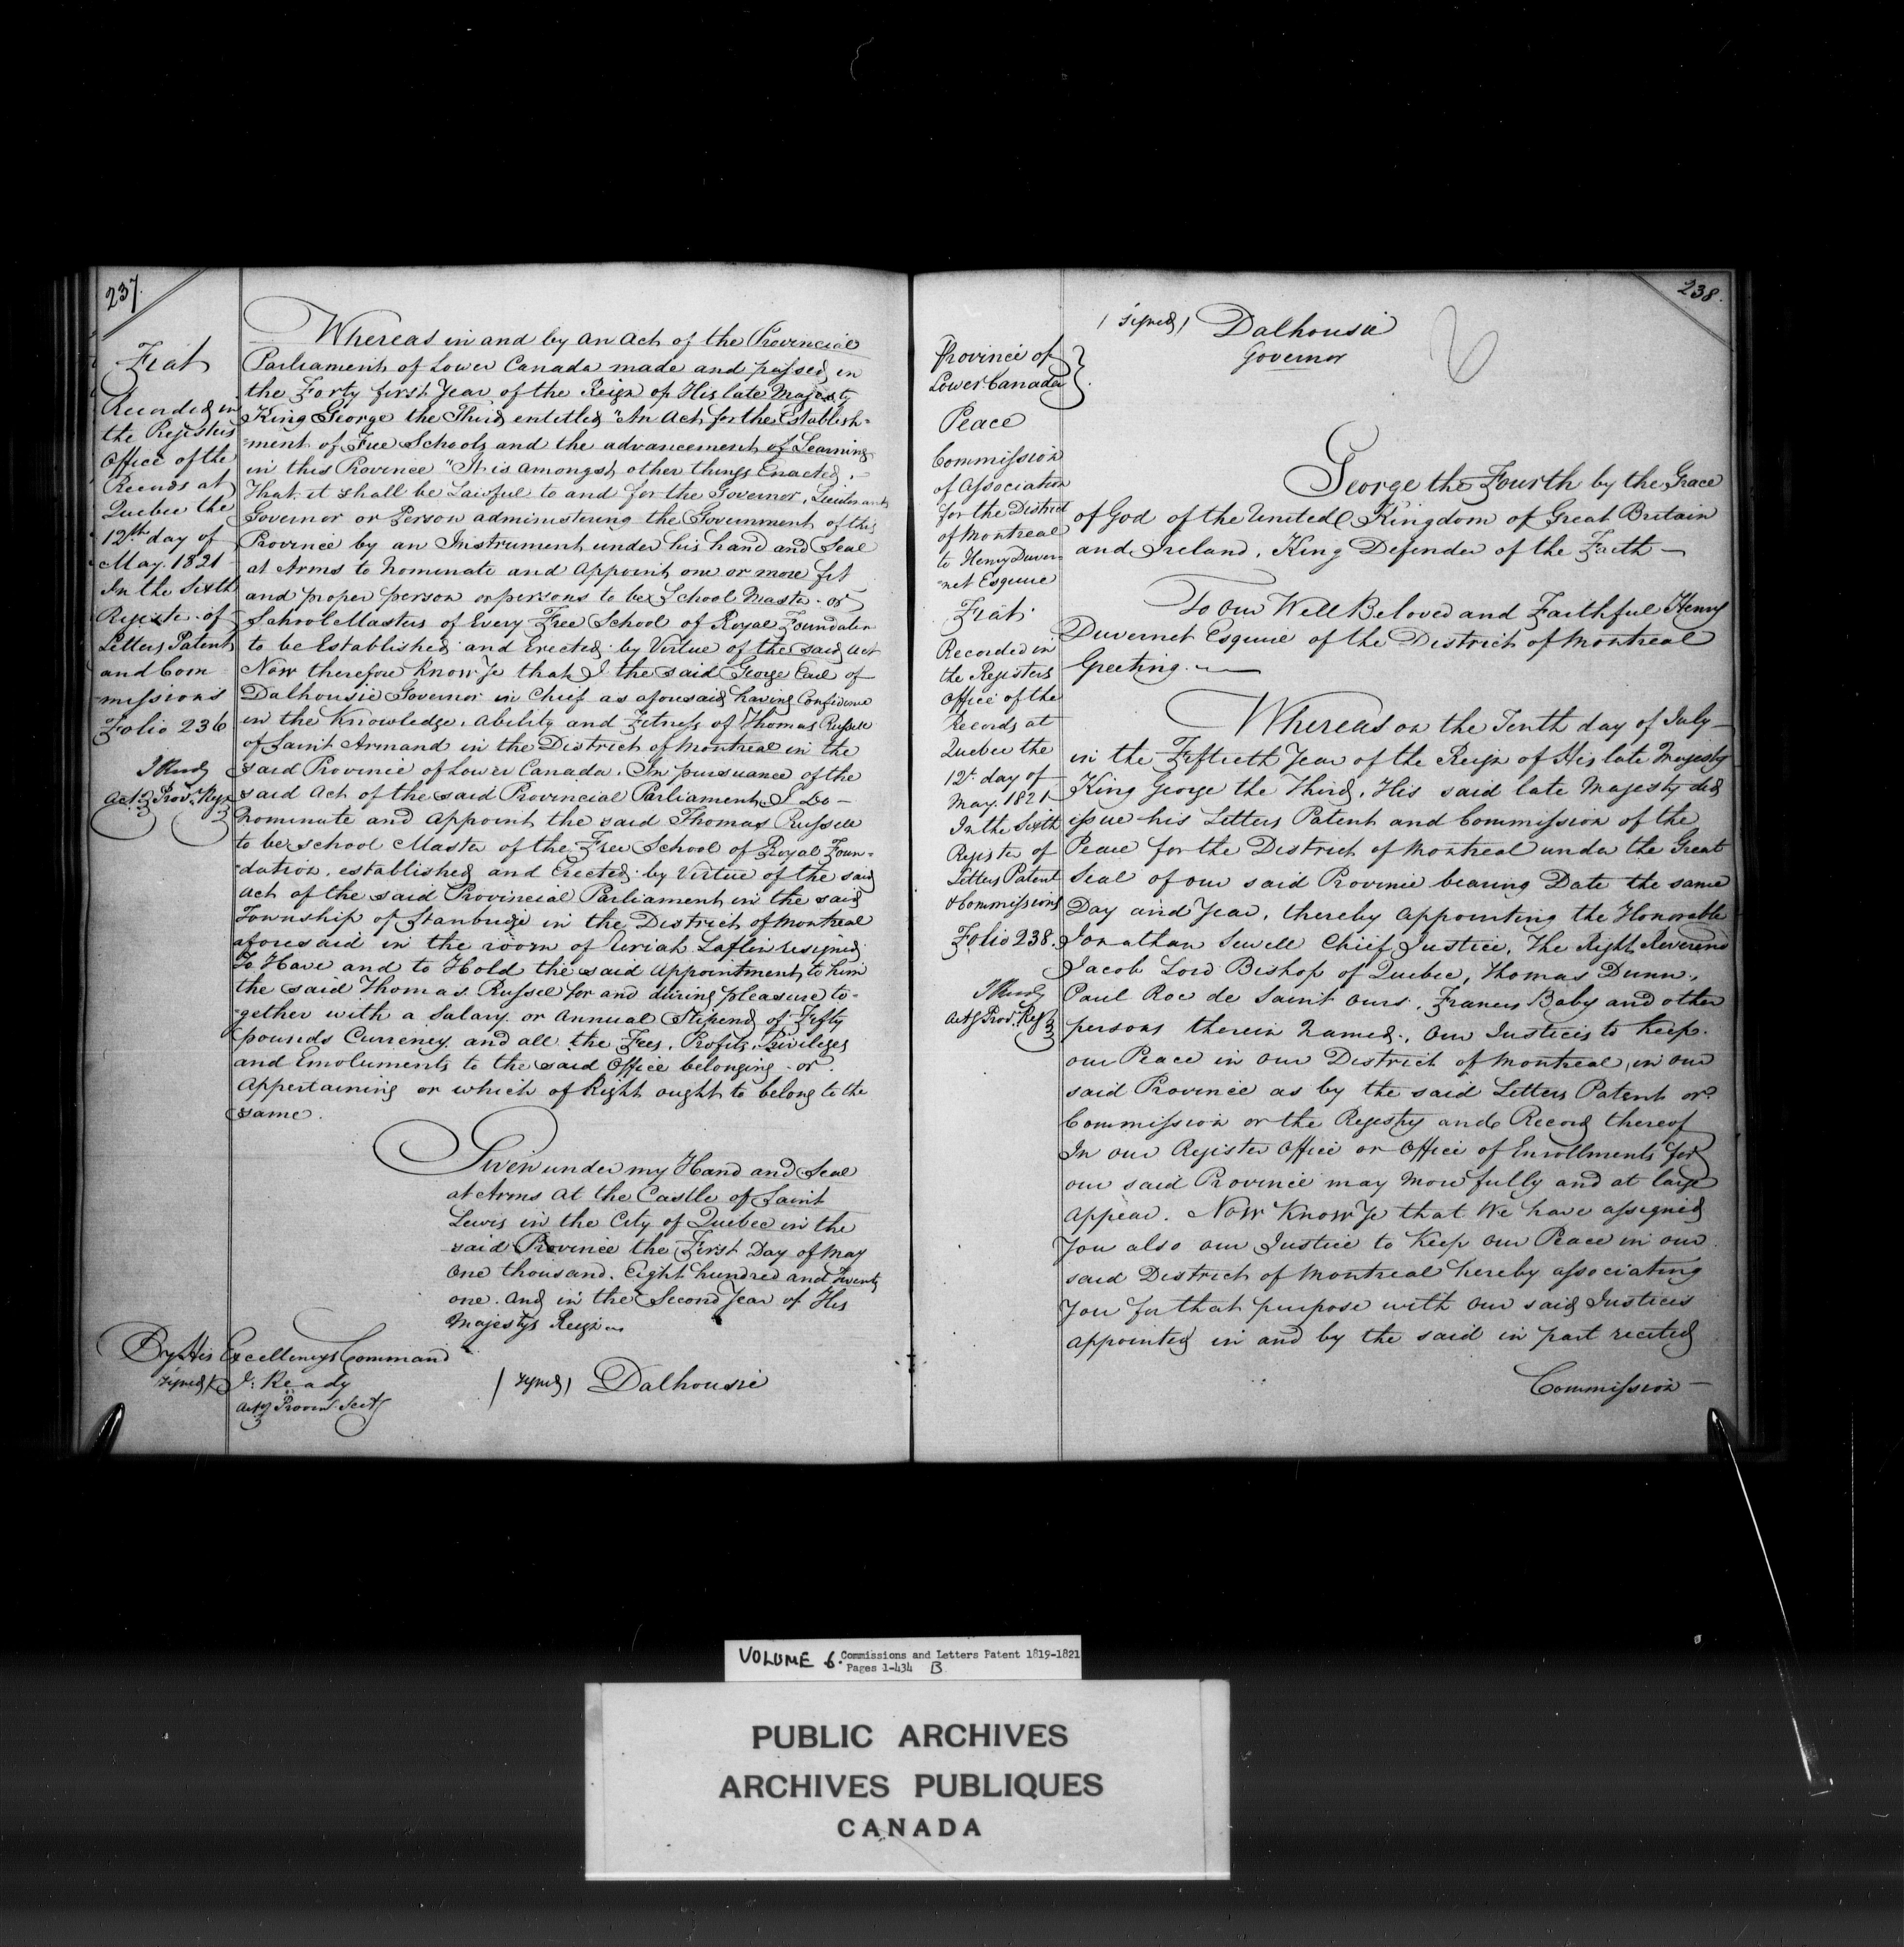 237.
Fiat
Recorded in
the Registers
Office of the
Records at
Quebec the
12th day of
May. 1821
In the Sixth
Register of
Letters Patent
and Com
-missions
Folio 236
J Ready
Actg Provl Regr
Whereas in and by an Act of the Provincial
Parliament of Lower Canada made and passed in
the Forty first Year of the Reign of His late Majesty
King George the Third entitled "An Act for the Establish-
-ment of Free Schools and the advancement of Learning
in this Province" It is amongst other things Enacted,
that it shall be Lawful to and for the Governor, Lieutenant
Governor or Person administering the Government of this
Province by an Instrument under his hand and Seal
at Arms to Nominate and Appoint one or more fit
and proper person or persons to be School Master or
School Masters of Every Free School of Royal Foundation
to be Established and Erected by Virtue of the said Act
Now therefore Know Ye that I the said George Earl of
Dalhousie Governor in Chief as aforesaid having Confidence
in the Knowledge, Ability and Fitness of Thomas Russell
of Saint Armand in the District of Montreal in the
said Province of Lower Canada. In pursuance of the
said Act of the said Provincial Parliament, I Do -
Nominate and Appoint the said Thomas Russell
to be School Master of the Free School of Royal Foun-
-dation, established and Erected by Virtue of the said
Act of the said Provincial Parliament in the said
Township of Stanbridge in the District of Montreal
aforesaid in the room of Uriah Laflin resigned
To Have and to Hold the said Appointment, to him
the said Thomas Russel for and during pleasure to-
-gether with a Salary or Annual Stipend of Fifty
pounds Currency and all the Fees, Profits, Privileges
and Emoluments to the said Office belonging or
Appertaining or which of Right ought to belong to the
same.
Given under my Hand and Seal
at Arms at the Castle of Saint
Lewis in the City of Quebec in the
said Province the First Day of May
One thousand, Eight hundred and twenty
one. And in the Second Year of His
Majestys Reign
By His Excellencys Command
signed J: Ready
Actg Provin Secty
(signed) Dalhousie
238.
(signed) Dalhousie
Governor
Province of
Lower Canada }
Peace
Commission
of Association
for the District
of Montreal
to Henry Duver-
-net Esquire
Fiat
Recorded in
the Registers
Office of the
Records at
Quebec the
12t. day of
May. 1821
In the Sixth
Register of
Letters Patent
& Commissions
Folio 238.
J Ready
Actg Provl Regr
George the Fourth by the Grace
of God of the United Kingdom of Great Britain
and Ireland, King Defender of the Faith -
To Our Well Beloved and Faithful Henry
Duvernet Esquire of the District of Montreal
Greeting.
Whereas on the Tenth day of July
in the Fiftieth Year of the Reign of His late Majesty
King George the Third, His said late Majesty did
issue his Letters Patent and Commission of the
Peace for the District of Montreal under the Great
Seal of our said Province bearing Date the same
Day and Year, thereby appointing the Honorable
Jonathan Sewell Chief Justice, The Right Reverend
Jacob Lord Bishop of Quebec, Thomas Dunn,
Paul Roc de Saint Ours, Francis Baby and other
persons therein Named, Our Justices to Keep
our Peace in our District of Montreal, in our
said Province as by the said Letters Patent or
Commission or the Registry and Record thereof
In our Register Office or Office of Enrollments for
our said Province may More fully and at large
Appear. Now Know Ye that We have assigned
You also our Justice to Keep our Peace in our
said District of Montreal hereby associating
You for that purpose with our said Justices
appointed in and by the said in part recited
Commission -
VOLUME 6. Commissions and Letters Patent 1819-1821
Pages 1-434 B
PUBLIC ARCHIVES
ARCHIVES PUBLIQUES
CANADA